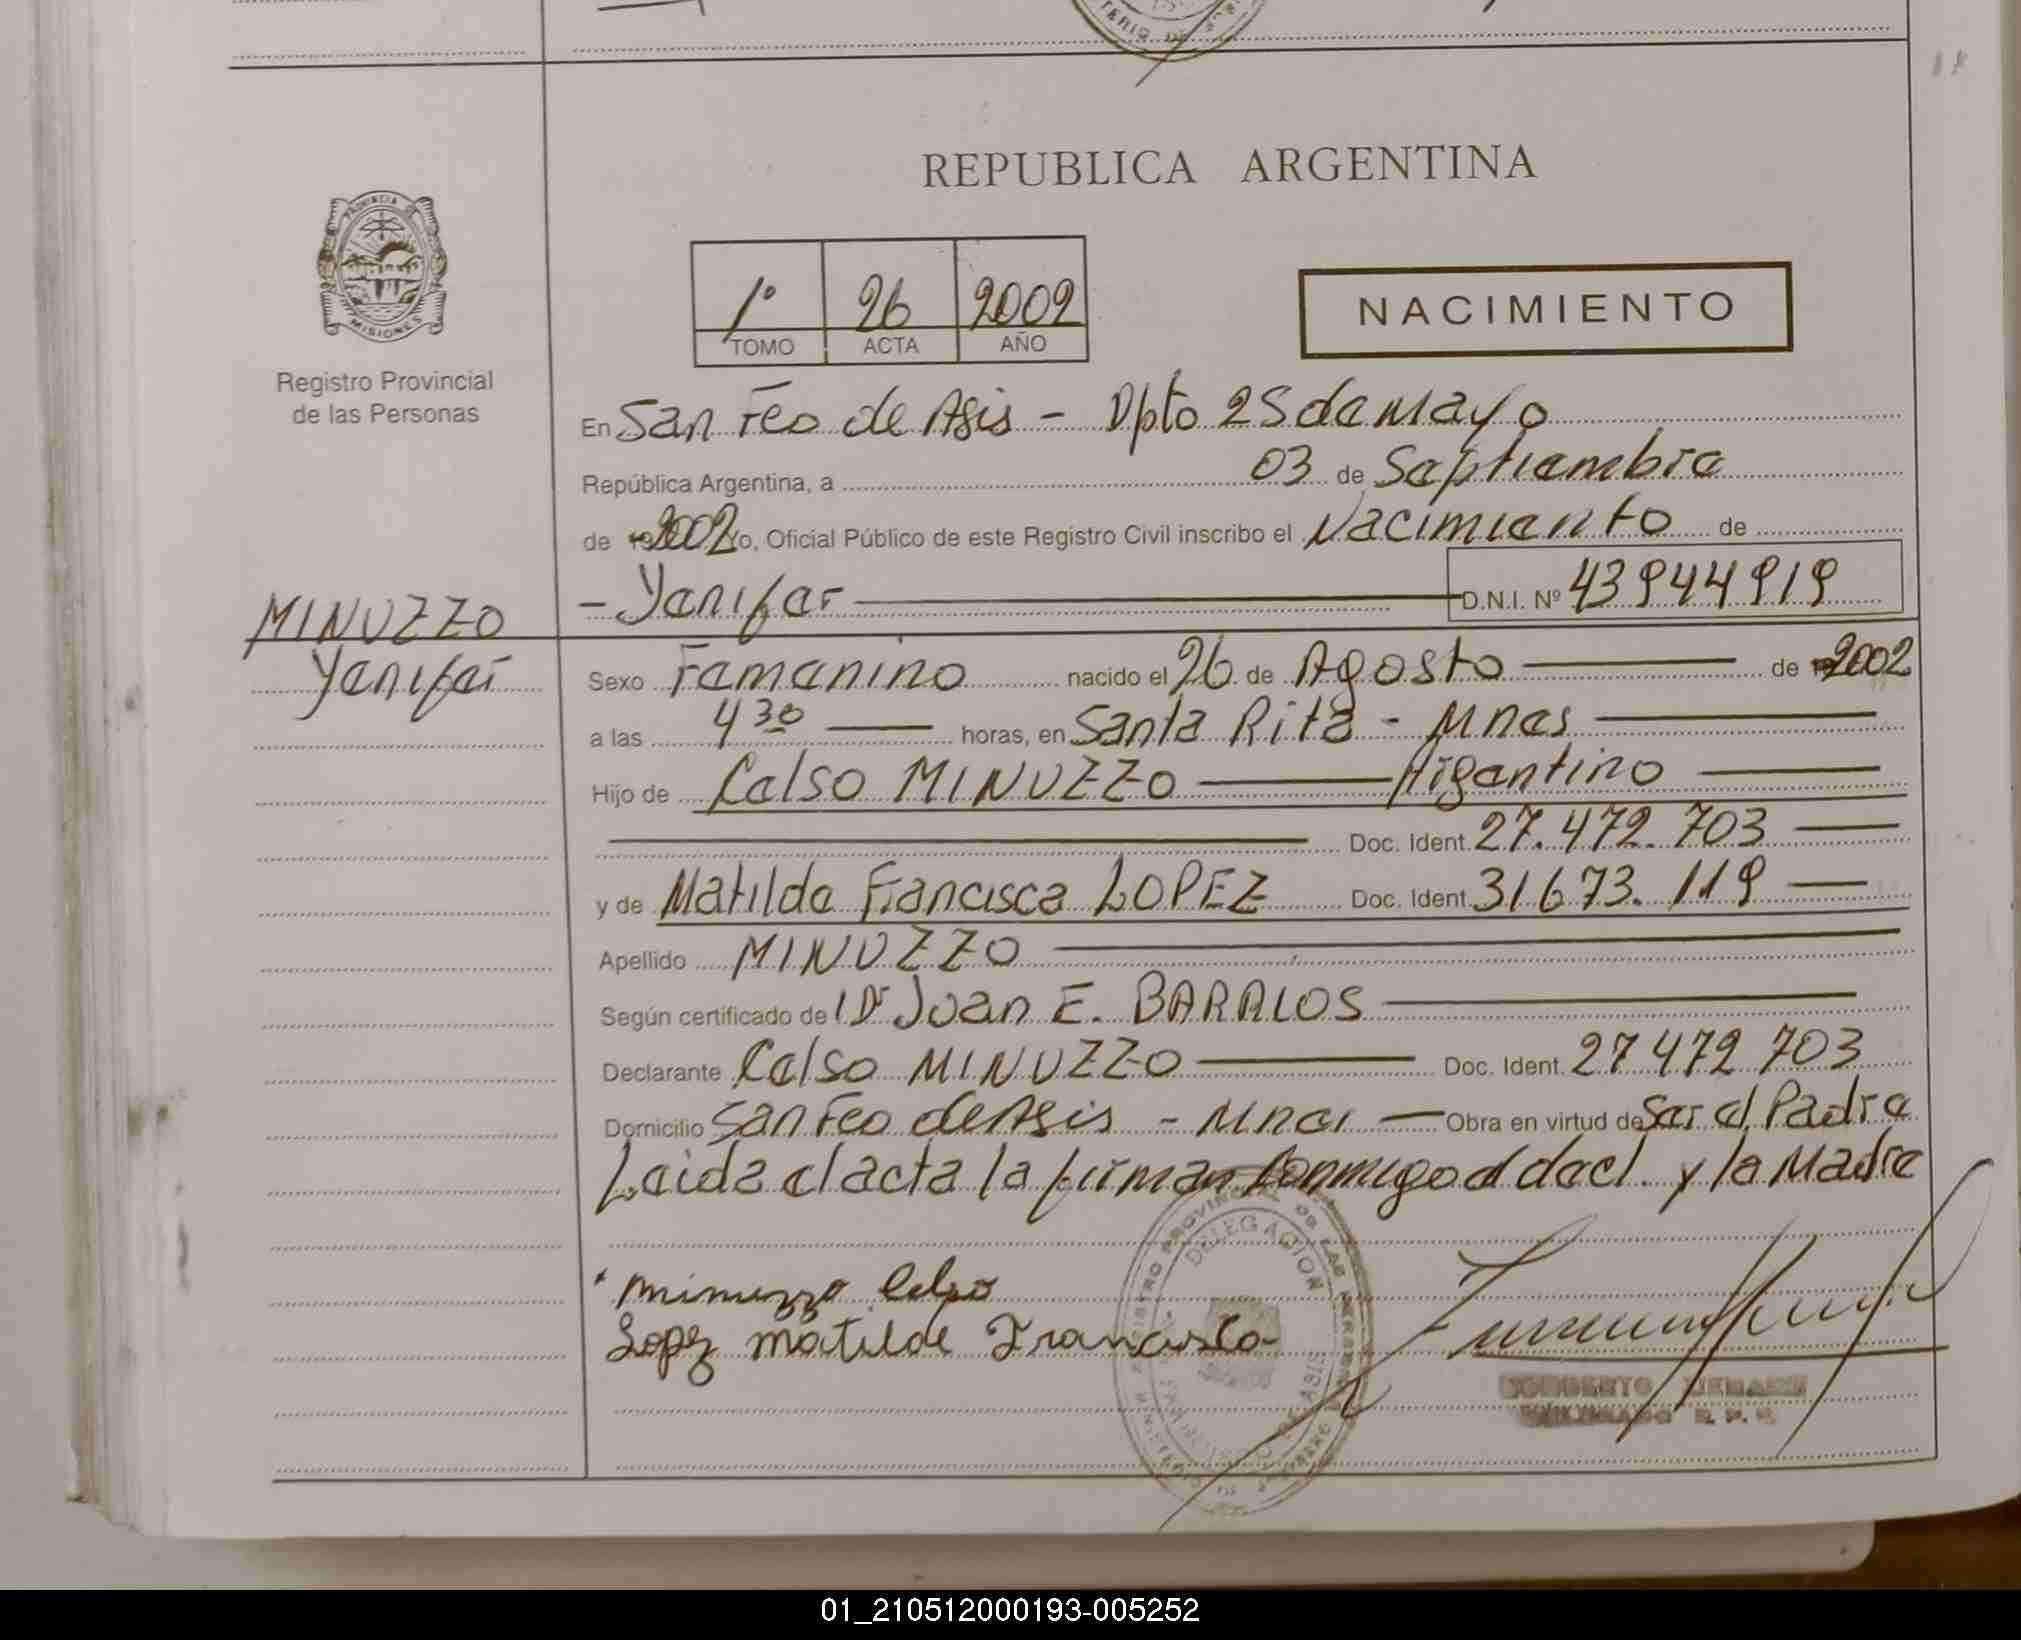 REPUBLICA ARGENTINA
PROVINCIA DE
MISIONES
Registro Provincial
de las Personas
1º 26 2002
TOMO ACTA AÑO
NACIMIENTO
En San Fco de Asis - Dpto 25 de Mayo
República Argentina, a 03 de Septiembre
de 2002 Yo, Oficial Público de este Registro Civil inscribo el Nacimiento de
- Yenifer D.N.I. Nº 43944919
MINUZZO
Yenifer
Sexo Femenino nacido el 26 de Agosto de 2002
a las 4 30 horas, en Santa Rita - Mnes
Hijo de Celso MINUZZO Argentino
Doc. Ident. 27.472.703
y de Matilde Francisca LOPEZ Doc. Ident. 31673.119
Apellido MINUZZO
Según certificado de Dr Juan E.
Declarante Celso MINUZZO Doc. Ident. 27472703
Domicilio San Fco de Asis - Mnes Obra en virtud de Ser el Padre
Leida el acta la firman conmigo el decl. y la Madre
DELEGACION
Minuzzo Celso
Lopez Matilde Francisca
01_210512000193-005252